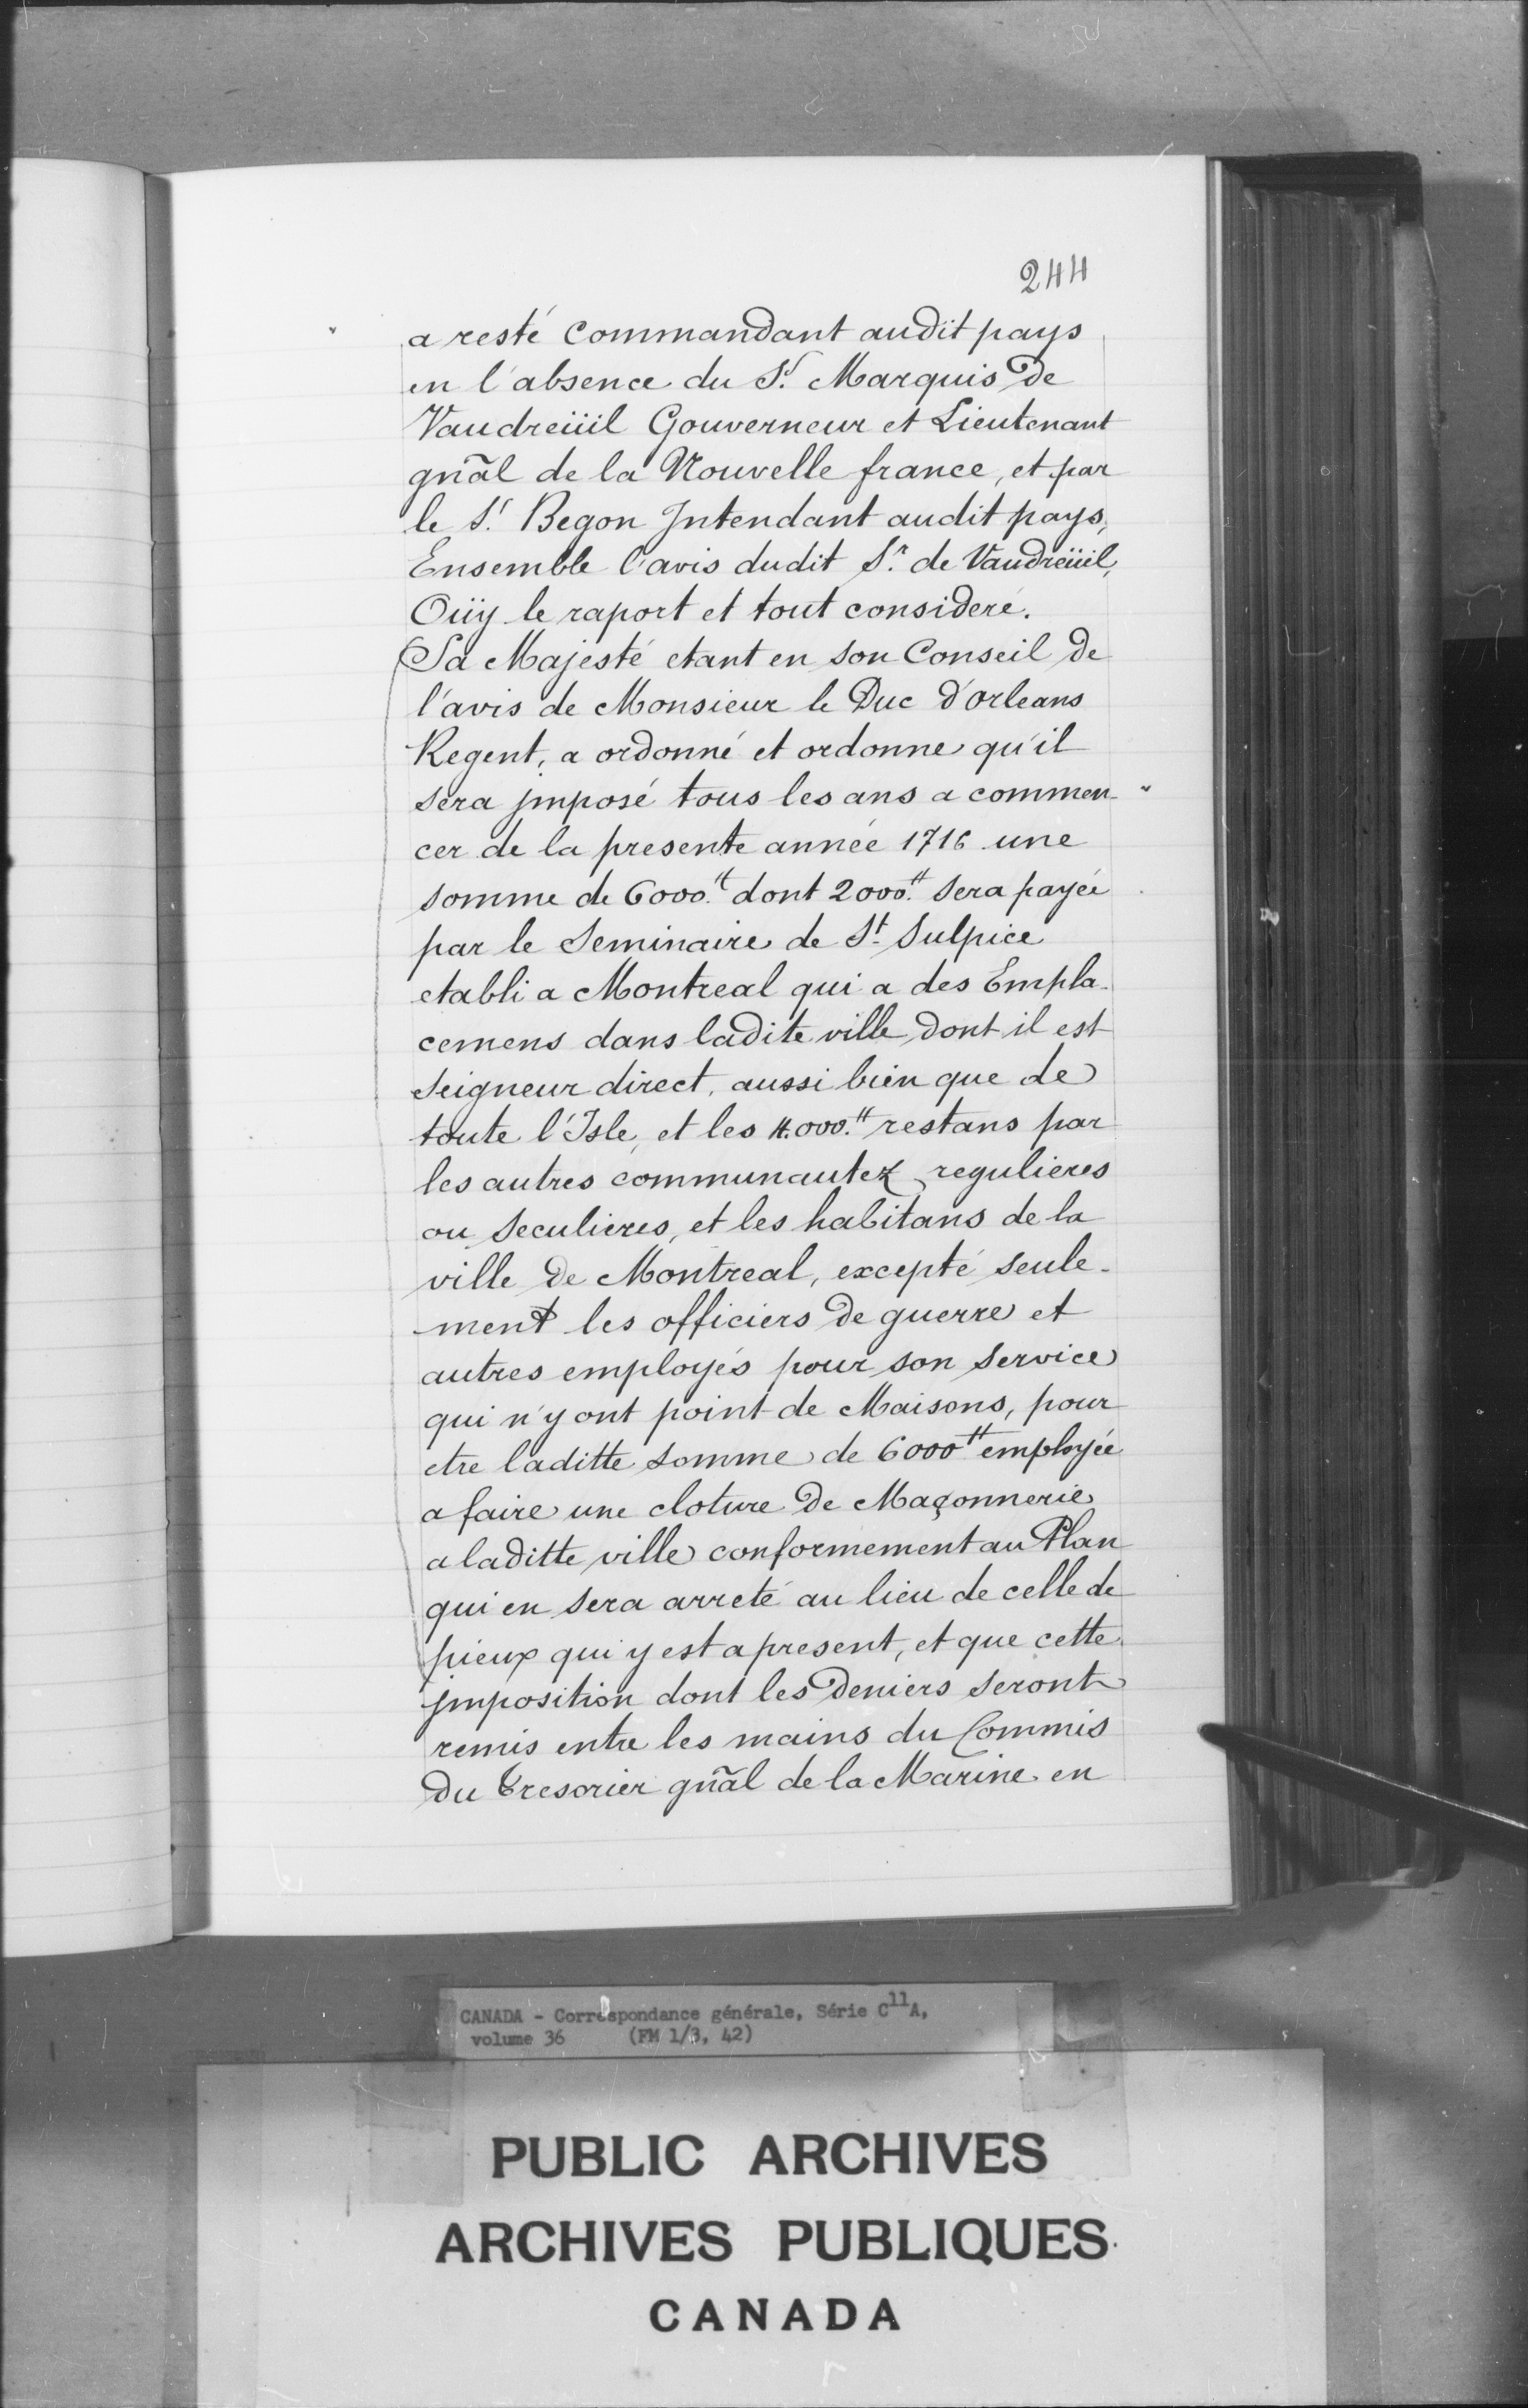 244
a resté Commandant audit pays
en l'absence du Sr. Marquis de
Vaudreüil Gouverneur et Lieutenant
gñal de la Nouvelle france, et par
le Sr. Begon Intendant audit pays,
Ensemble l'avis dudit Sr. de Vaudreüil,
Oüy le raport et tout consideré.
Sa Majesté etant en son Conseil de
l'avis de Monsieur le Duc d'orleans
Regent, a ordonné et ordonne qu'il
sera jmposé tous les ans a commen-
cer de la presente année 1716 une
somme de 6000.ᵗᵗ dont 2000.ᵗᵗ sera payée
par le Seminaire de St. Sulpice
etabli a Montreal qui a des Empla-
cemens dans ladite ville, dont il est
Seigneur direct, aussi bien que de
toute l'Isle, et les 4.000.ᵗᵗ restans par
les autres communautez regulieres
ou seculieres, et les habitans de la
ville de Montreal, excepté seule-
ment les officiers de guerre et
autres employés pour son service
qui n'y ont point de Maisons, pour
etre laditte somme de 6000ᵗᵗ employée
a faire une cloture de Maçonnerie
a laditte ville conformement au Plan
qui en sera arreté au lieu de celle de
pieux qui y est a present, et que cette
jmposition dont les Deniers seront
remis entre les mains du Commis
du Tresorier gñal de la Marine en
CANADA - Correspondance générale, Série C¹¹A,
volume 36 (FM 1/3, 42)
PUBLIC ARCHIVES
ARCHIVES PUBLIQUES
CANADA